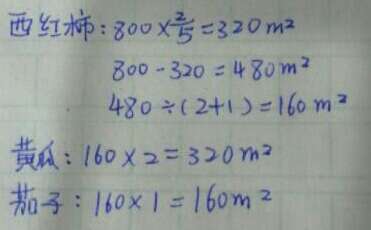 西红柿：800×2/5=320m²
800-320=480m²
480÷(2+1)=160m²
黄瓜：160×2=320m²
茄子：160×1=160m²